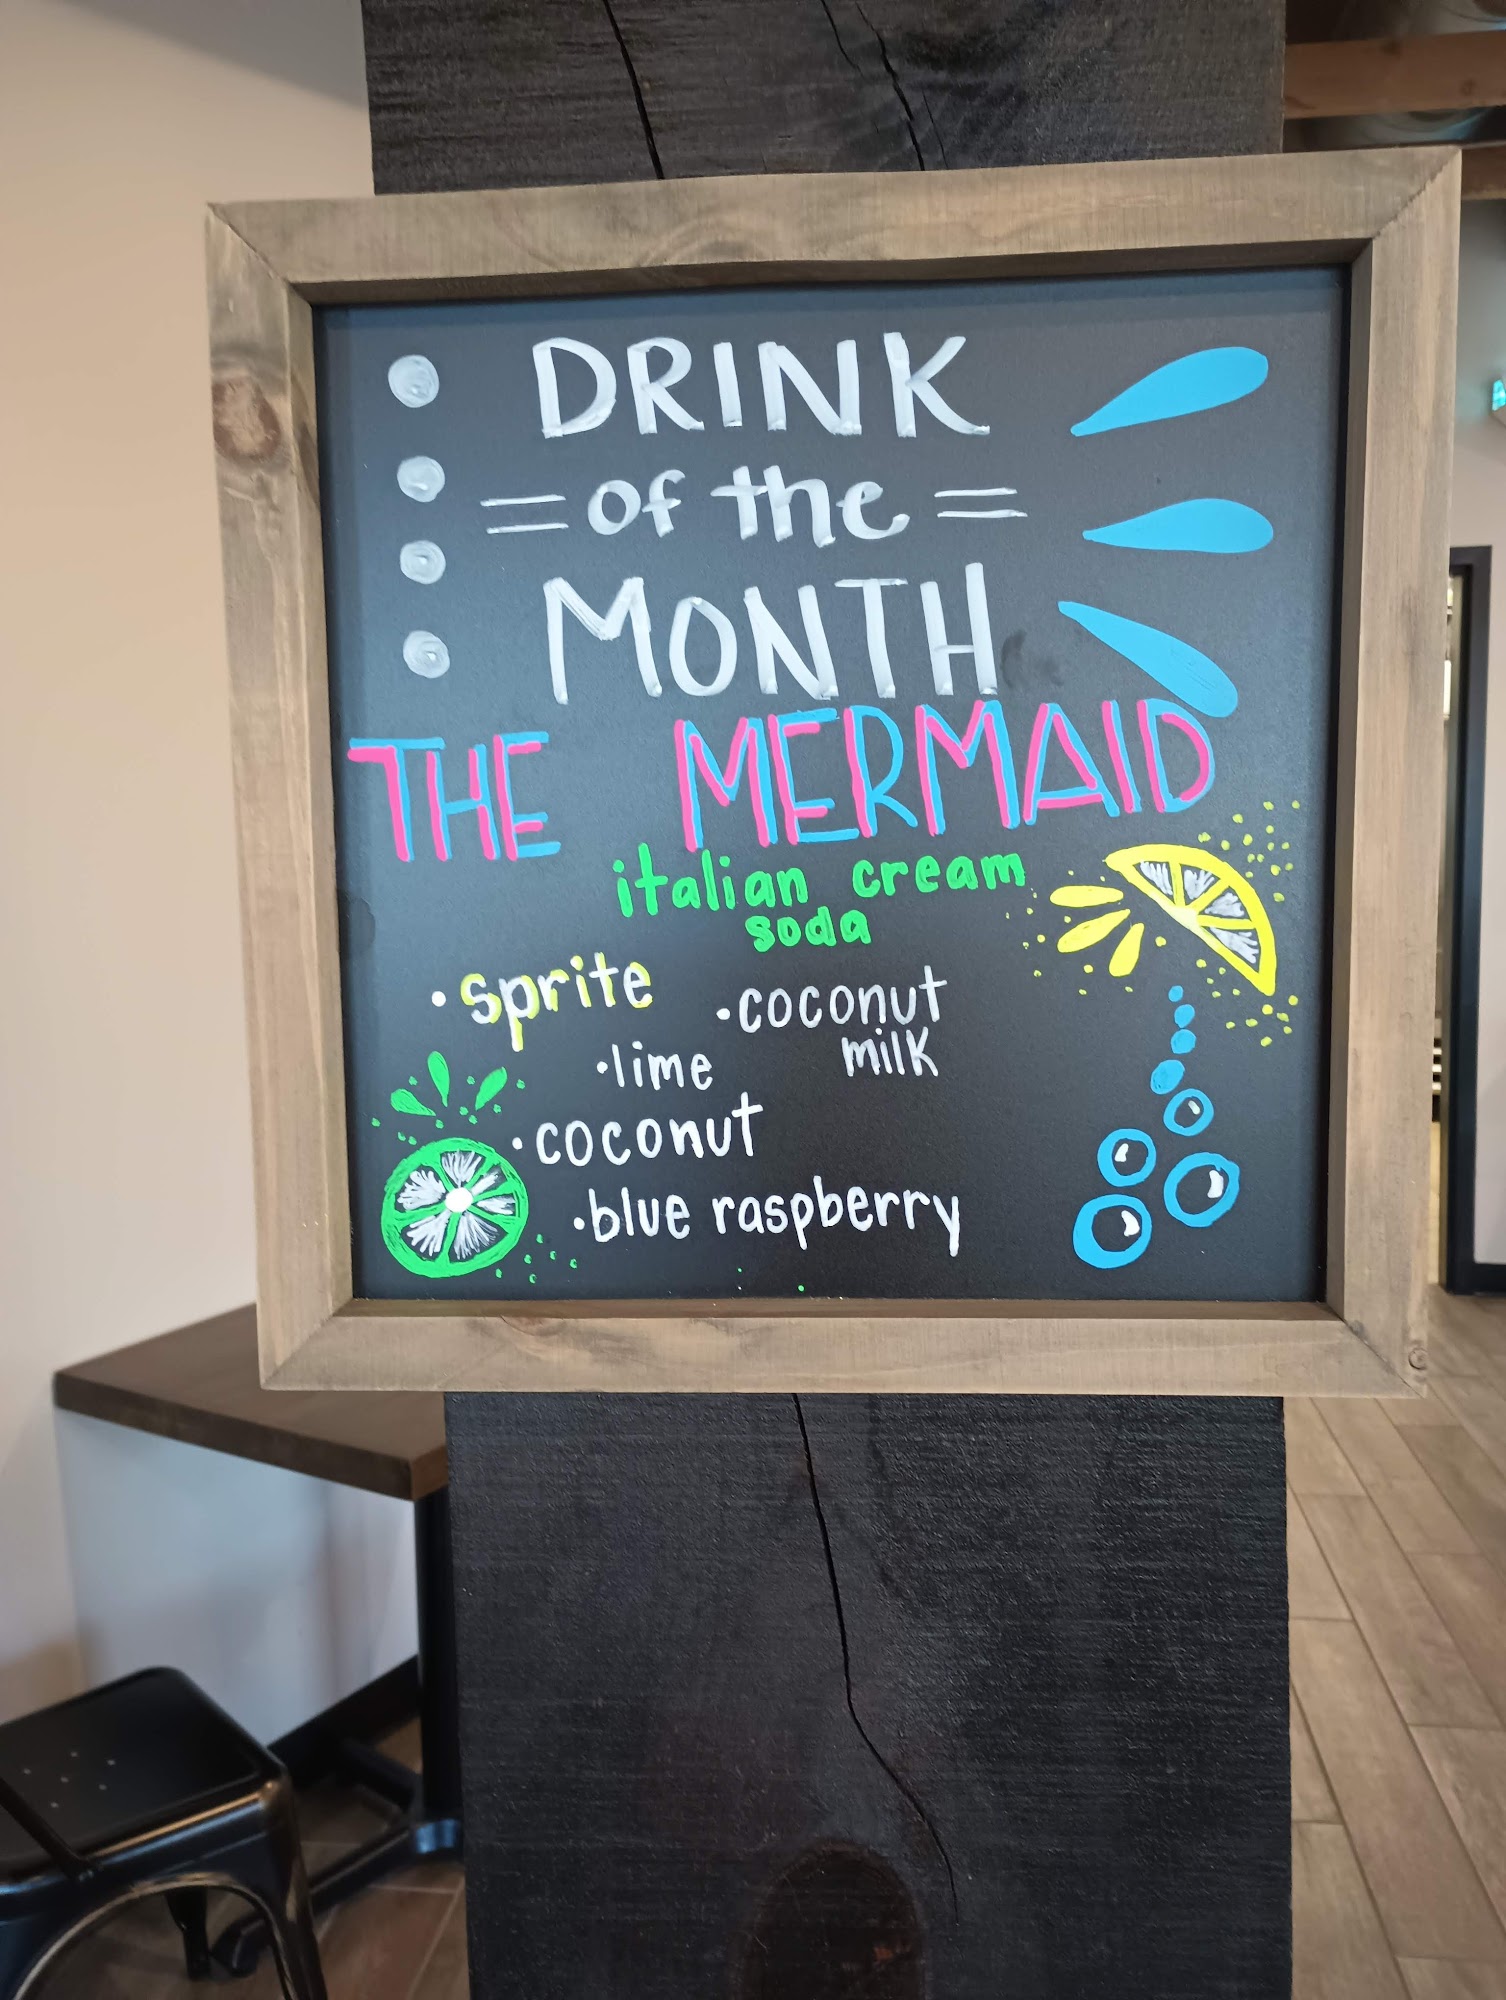 DRINK
= of the =
MONTH
THE MERMAID
italian cream
soda
• sprite
• coconut
milk
• lime
• coconut
• blue raspberry